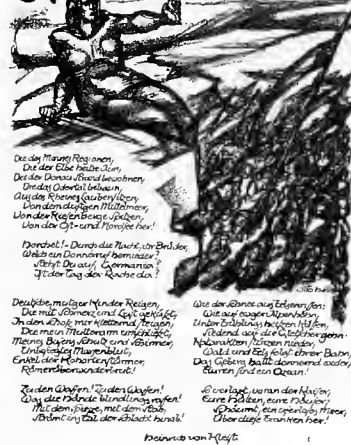 Die des Maines Regionen,
Die der Elbe heitre Aun,
Die der Donau Strand bewohnen,
Die das Odertal bebaun,
Aus des Rheines Laubensitzen,
Von dem duftgen Mittelmeer,
Von der Riesenberge Spitzen,
Von der Ost- und Nordsee her!
Horchet! - Durch die Nacht, ihr Brüder,
Welch ein Donnerruf hernieder?
Stehst Du auf, Germania?
Ist der Tag der Rache da?
Deutsche, mutger Kinder Reigen,
Die mit Schmerz und Lust geküßt,
In den Schoß mir kletternd steigen,
Die mein Mutterarm umschließt,
Meines Busens Schutz und Schirmer,
Unbesiegtes Marsenblut,
Enkel der Kohortenstürmer,
Römerüberwinderbrut!
Zu den Waffen! Zu den Waffen!
Was die Hände blindlings raffen!
Mit dem Spieße, mit dem Stab,
Strömt ins Tal der Schlacht hinab!
Wie der Schnee aus Felsenrissen:
Wie auf ewger Alpen Höhn,
Unter Frühlings heißen Küssen,
Siedend auf die Gletscher gehn:
Katarakten stürzen nieder,
Wald und Fels folgt ihrer Bahn,
Das Gebirg hallt donnernd wider,
Fluren sind ein Ozean!
So verlaßt, voran der Kaiser,
Eure Hütten, eure Häuser;
Schäumt, ein uferloses Meer,
Über diese Franken her!
Heinrich von Kleist